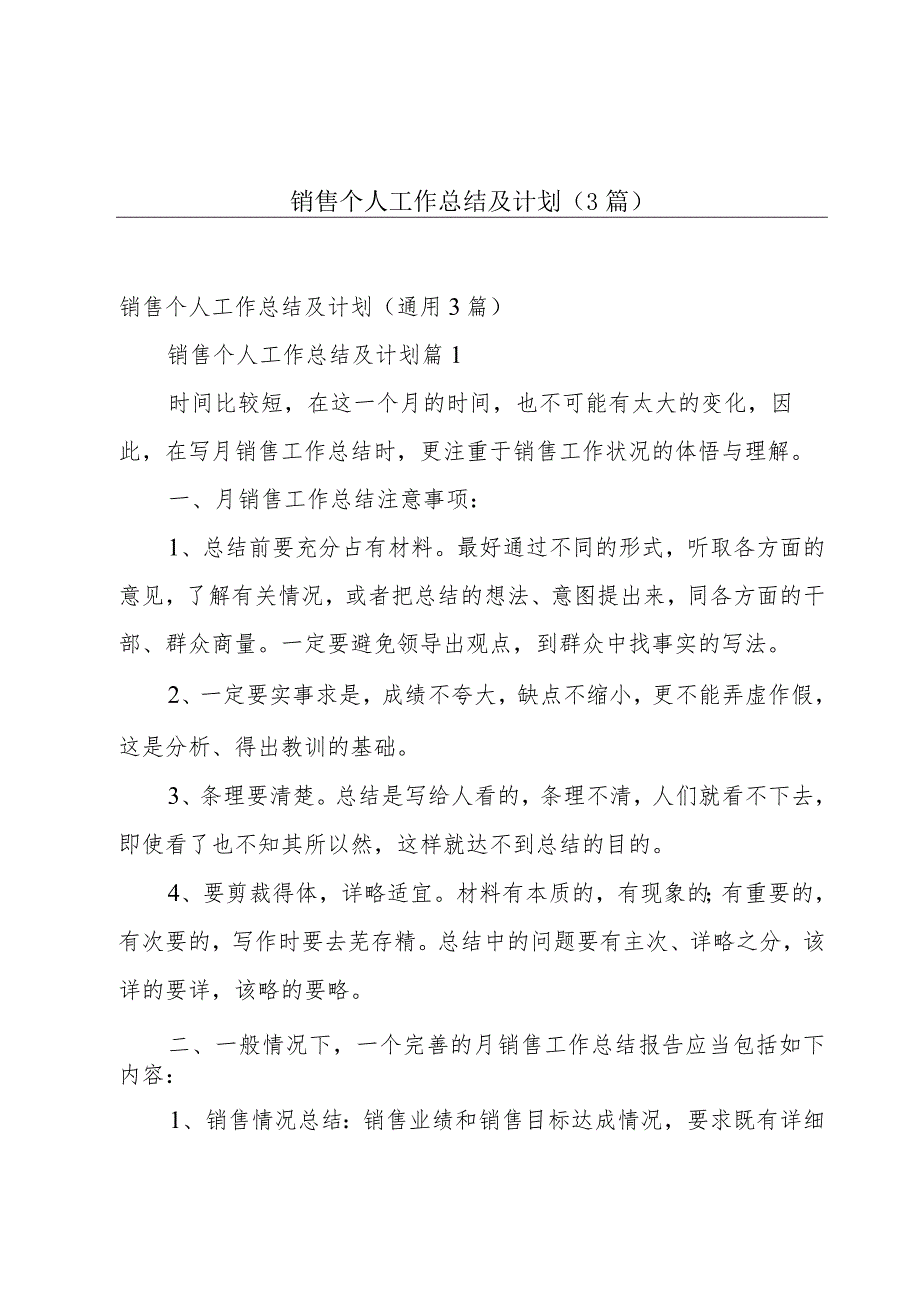 销售个人工作总结及计划（3 篇）
销售个人工作总结及计划（通用 3 篇）
销售个人工作总结及计划篇 1
时间比较短，在这一个月的时间，也不可能有太大的变化，因
此，在写月销售工作总结时，更注重于销售工作状况的体悟与理解。
一、月销售工作总结注意事项：
1、总结前要充分占有材料。最好通过不同的形式，听取各方面的
意见，了解有关情况，或者把总结的想法、意图提出来，同各方面的干
部、群众商量。一定要避免领导出观点，到群众中找事实的写法。
2、一定要实事求是，成绩不夸大，缺点不缩小，更不能弄虚作假，
这是分析、得出教训的基础。
3、条理要清楚。总结是写给人看的，条理不清，人们就看不下去，
即使看了也不知其所以然，这样就达不到总结的目的。
4、要剪裁得体，详略适宜。材料有本质的，有现象的；有重要的，
有次要的，写作时要去芜存精。总结中的问题要有主次、详略之分，该
详的要详，该略的要略。
二、一般情况下，一个完善的月销售工作总结报告应当包括如下
内容：
1、销售情况总结：销售业绩和销售目标达成情况，要求既有详细